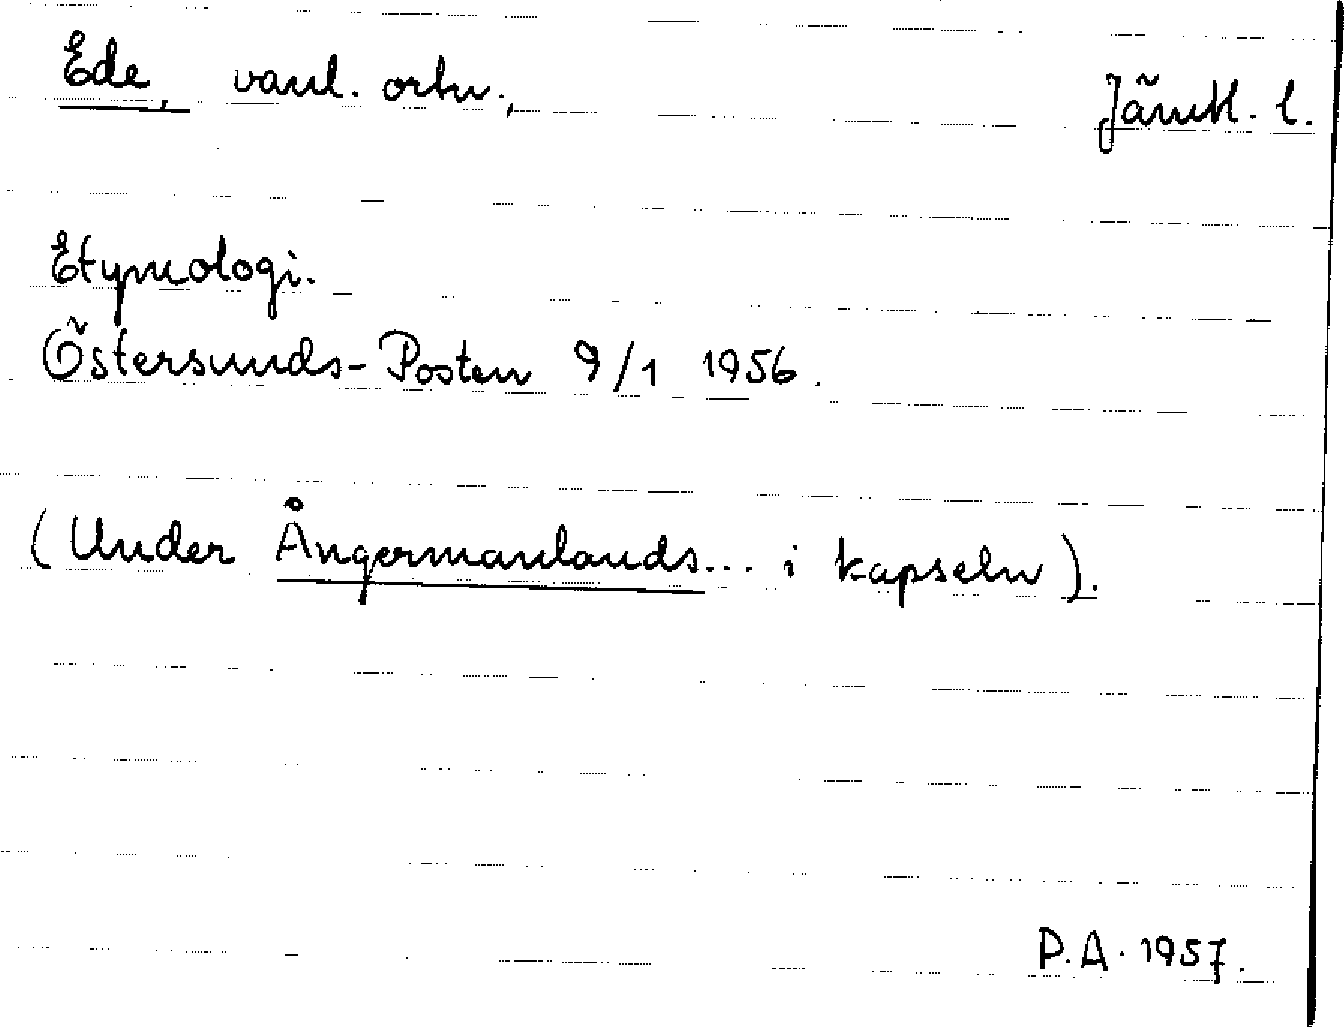 Ede, vanl. ortn., Jämtl. l.
Etymologi.
Östersunds-Posten 9/1 1956.
(Under Ångermanlands... i kapseln).
P.A. 1957.